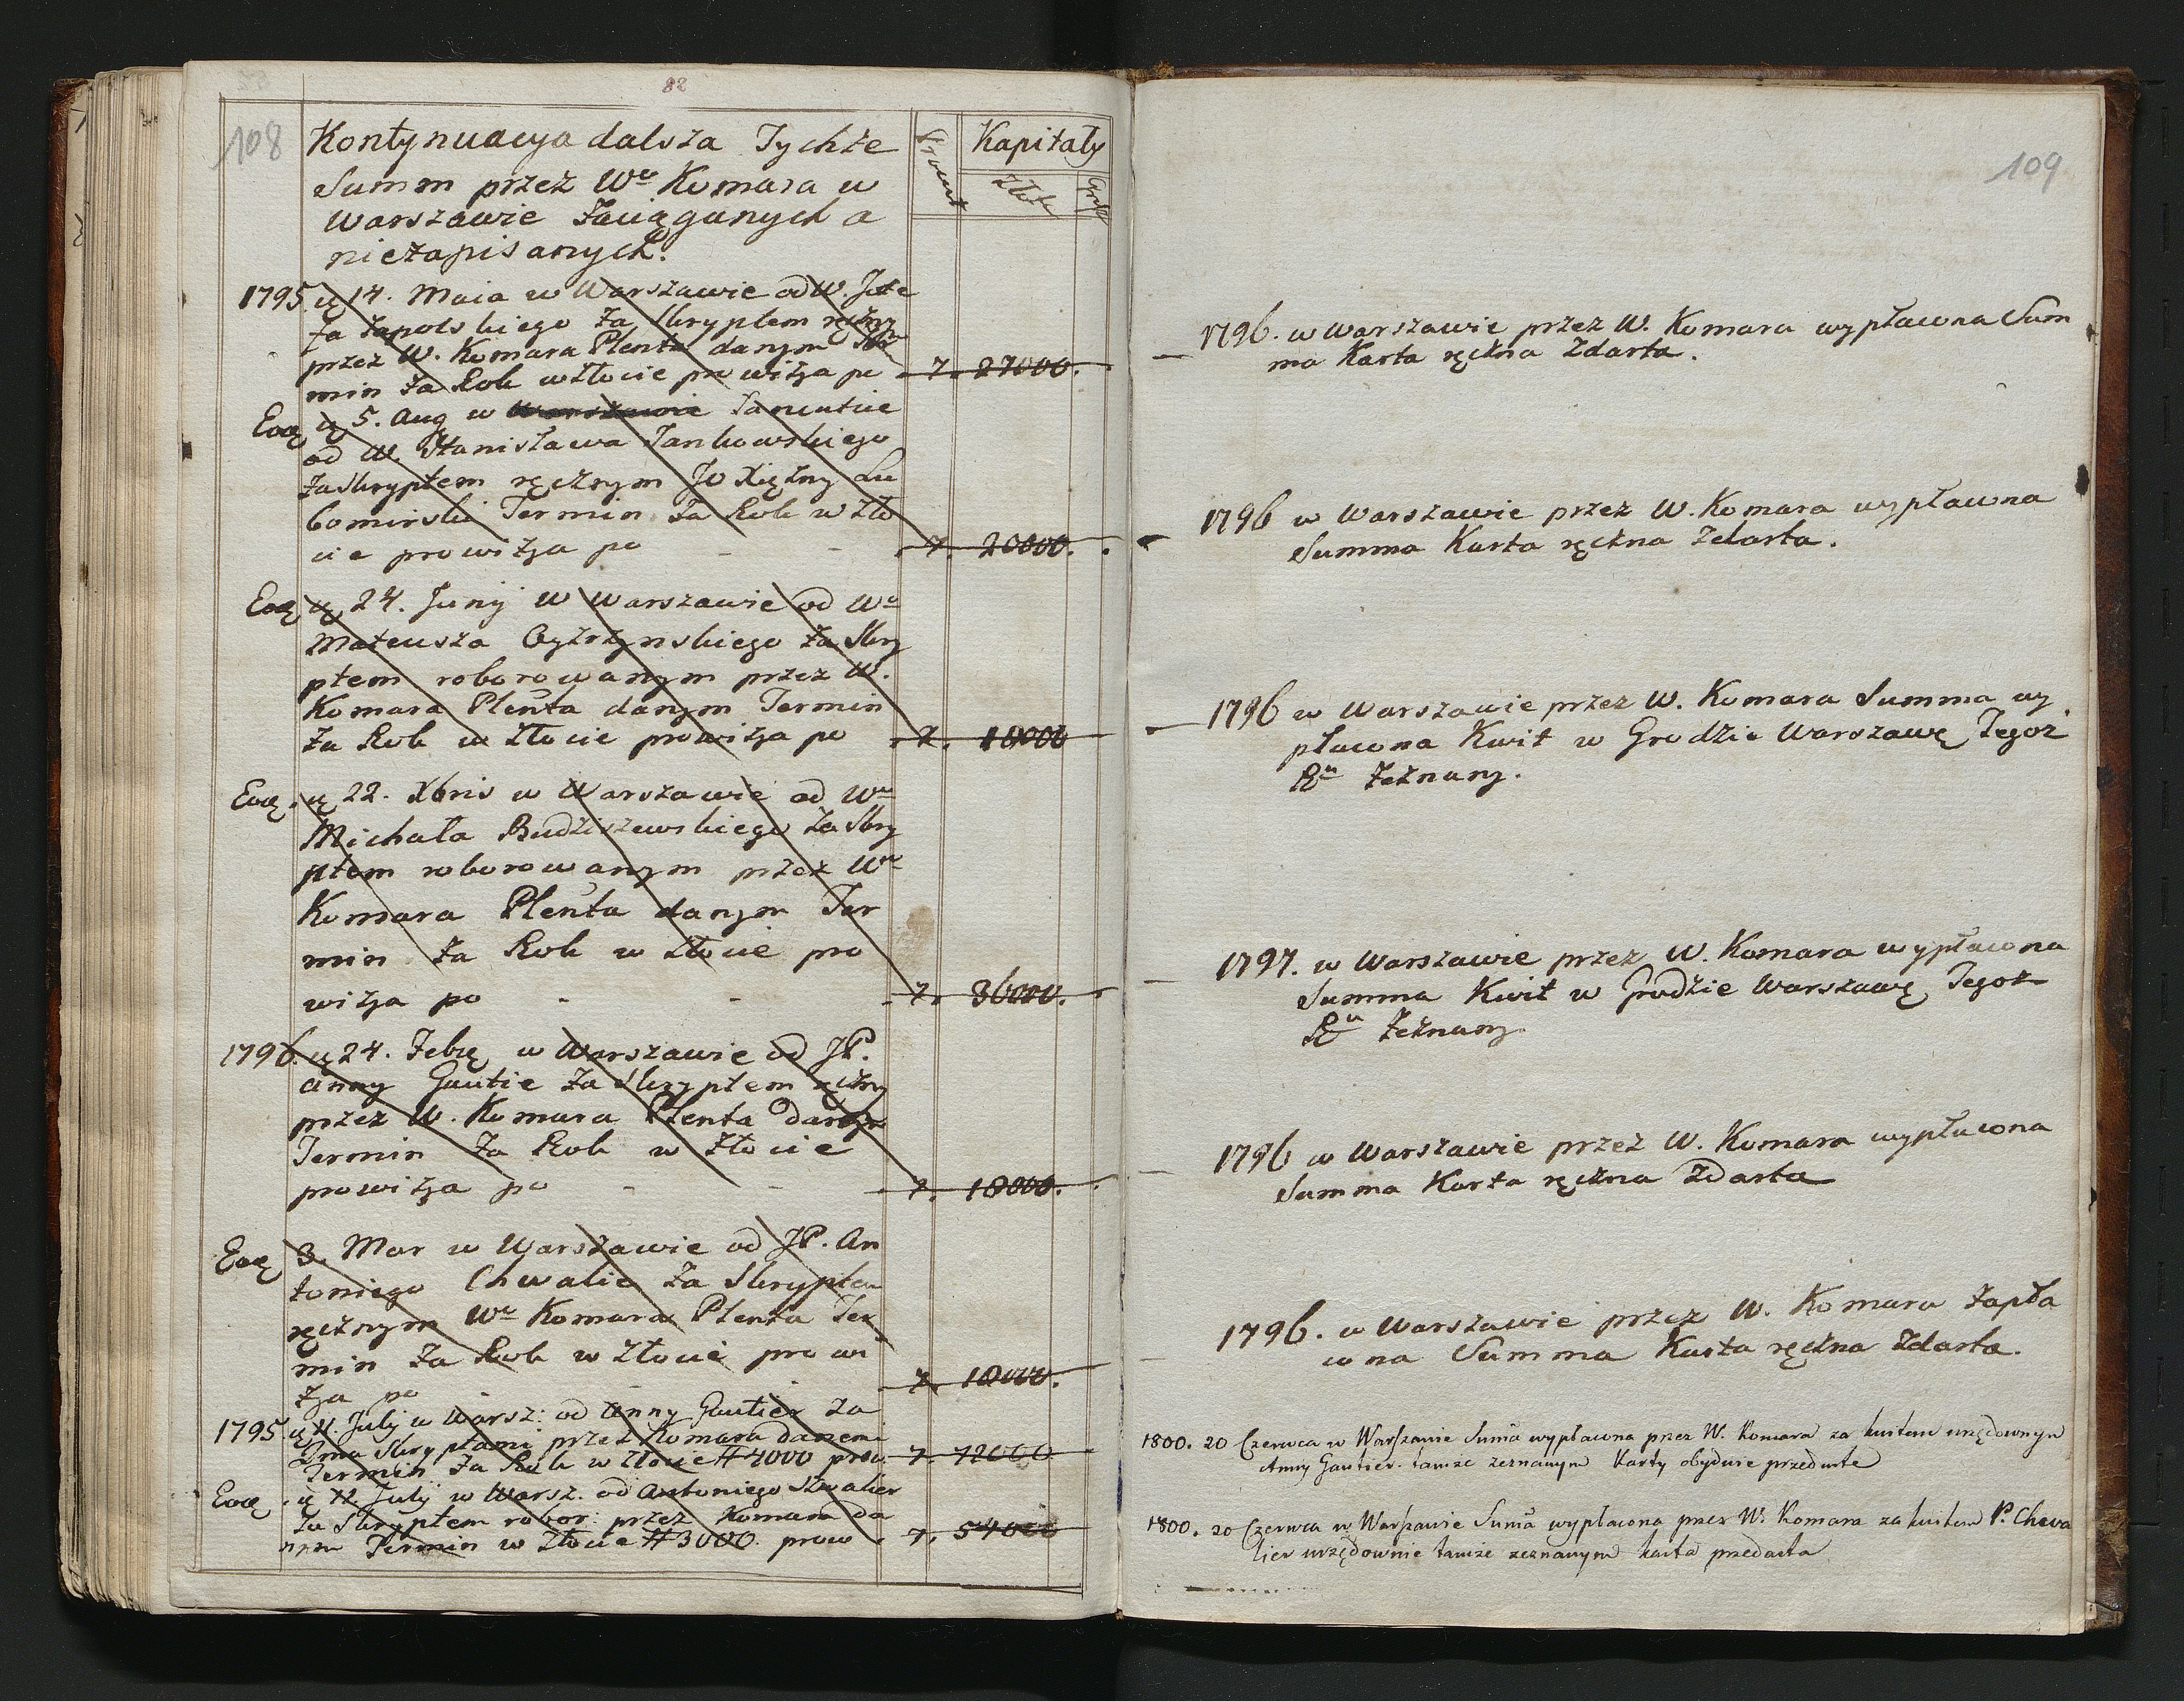 82
108
Kontynuacya dalsza Tychże
Summ przez Wo Komara w
Warszawie Zaciąganych a
niezapisanych.
Procent
Kapitały
Złote
Grosze
1795. ią 14. Maia w Warszawie od W. Joze
fa Zapolskiego Za Skryptem ręczny
przez W. Komara Plenta danym Ter
min Za Rok w Złocie prowizja po 7. 27000.
Eoq ią 5. Aug w Warszawie Łancucie
od W Stanisława Jankowskiego
Za Skryptem ręcznym JO Xiężny Lu
bomirski Termin Za Rok w Zło
cie prowizja po - - 7. 20000.
Eoq ią 24. Junij w Warszawie od Wo
Mateusza Cyżrzynskiego Za Skry
ptem roborowanym przez W.
Komara Plenta danym Termin
Za Rok w Złocie prowizja po 7. 18000
Eoq. ią 22. Xbris w Warszawie od Wo
Michała Budziszewskiego Za Skry
ptem roborowanym przez Wo
Komara Plenta danym Ter
min Za Rok w Złocie pro
wizja po - - 7. 36000.
1796. ią 24. Febrę w Warszawie od JP.
Anny Gautie Za Skryptem ręczny
przez W. Komara Plenta danym
Termin Za Rok w Złocie
prowizja po - - 7. 18000.
Eoq 3. Mar w Warszawie od JP. An
toniego Chwalie Za Skryptem
ręcznym Wo Komara Plenta Ter
min Za Rok w Złocie prowi
zja po 7. 18000.
1795. ią 11. July w Warsz: od Anny Gautier Za
2ma Skryptami przez Komara danemi
Termin Za Rok w Złocie # 4000 prow 7. 72000
Eoq. ią 12. July w Warsz. od Antoniego Szwalier
Za Skryptem robor: przez Komara da
nym Termin w Złocie # 3000. prow. 7. 54000
109
1796. w Warszawie przez W. Komara wypłacona Sum
ma Karta ręczna Zdarta.
1796 w Warszawie przez W. Komara wypłacona
Summa Karta ręczna Zdarta.
1796 w Warszawie przez W. Komara Summa wy
płacona Kwit w Grodzie Warszawę Tegoż
Ru Zeznany.
1797. w Warszawie przez W. Komara wypłacona
Summa Kwit w Grodzie Warszawę Tegoż
Ru Zeznany.
1796 w Warszawie przez W. Komara wypłacona
Summa Karta ręczna Zdarta
1796. w Warszawie przez W. Komara Zapła
cona Summa Karta ręczna Zdarta.
1800. 20 Czerwca w Warszawie Suma wypłacona przez W. Komara za kwitem urzędownym
Anny Gautier. tamże zeznanym Karty obydwie przedarte
1800. 20 Czerwca w Warszawie Suma wypłacona przez W. Komara za kwitem P. Cheva
lier urzędownie tamże zeznanym karta przedarta